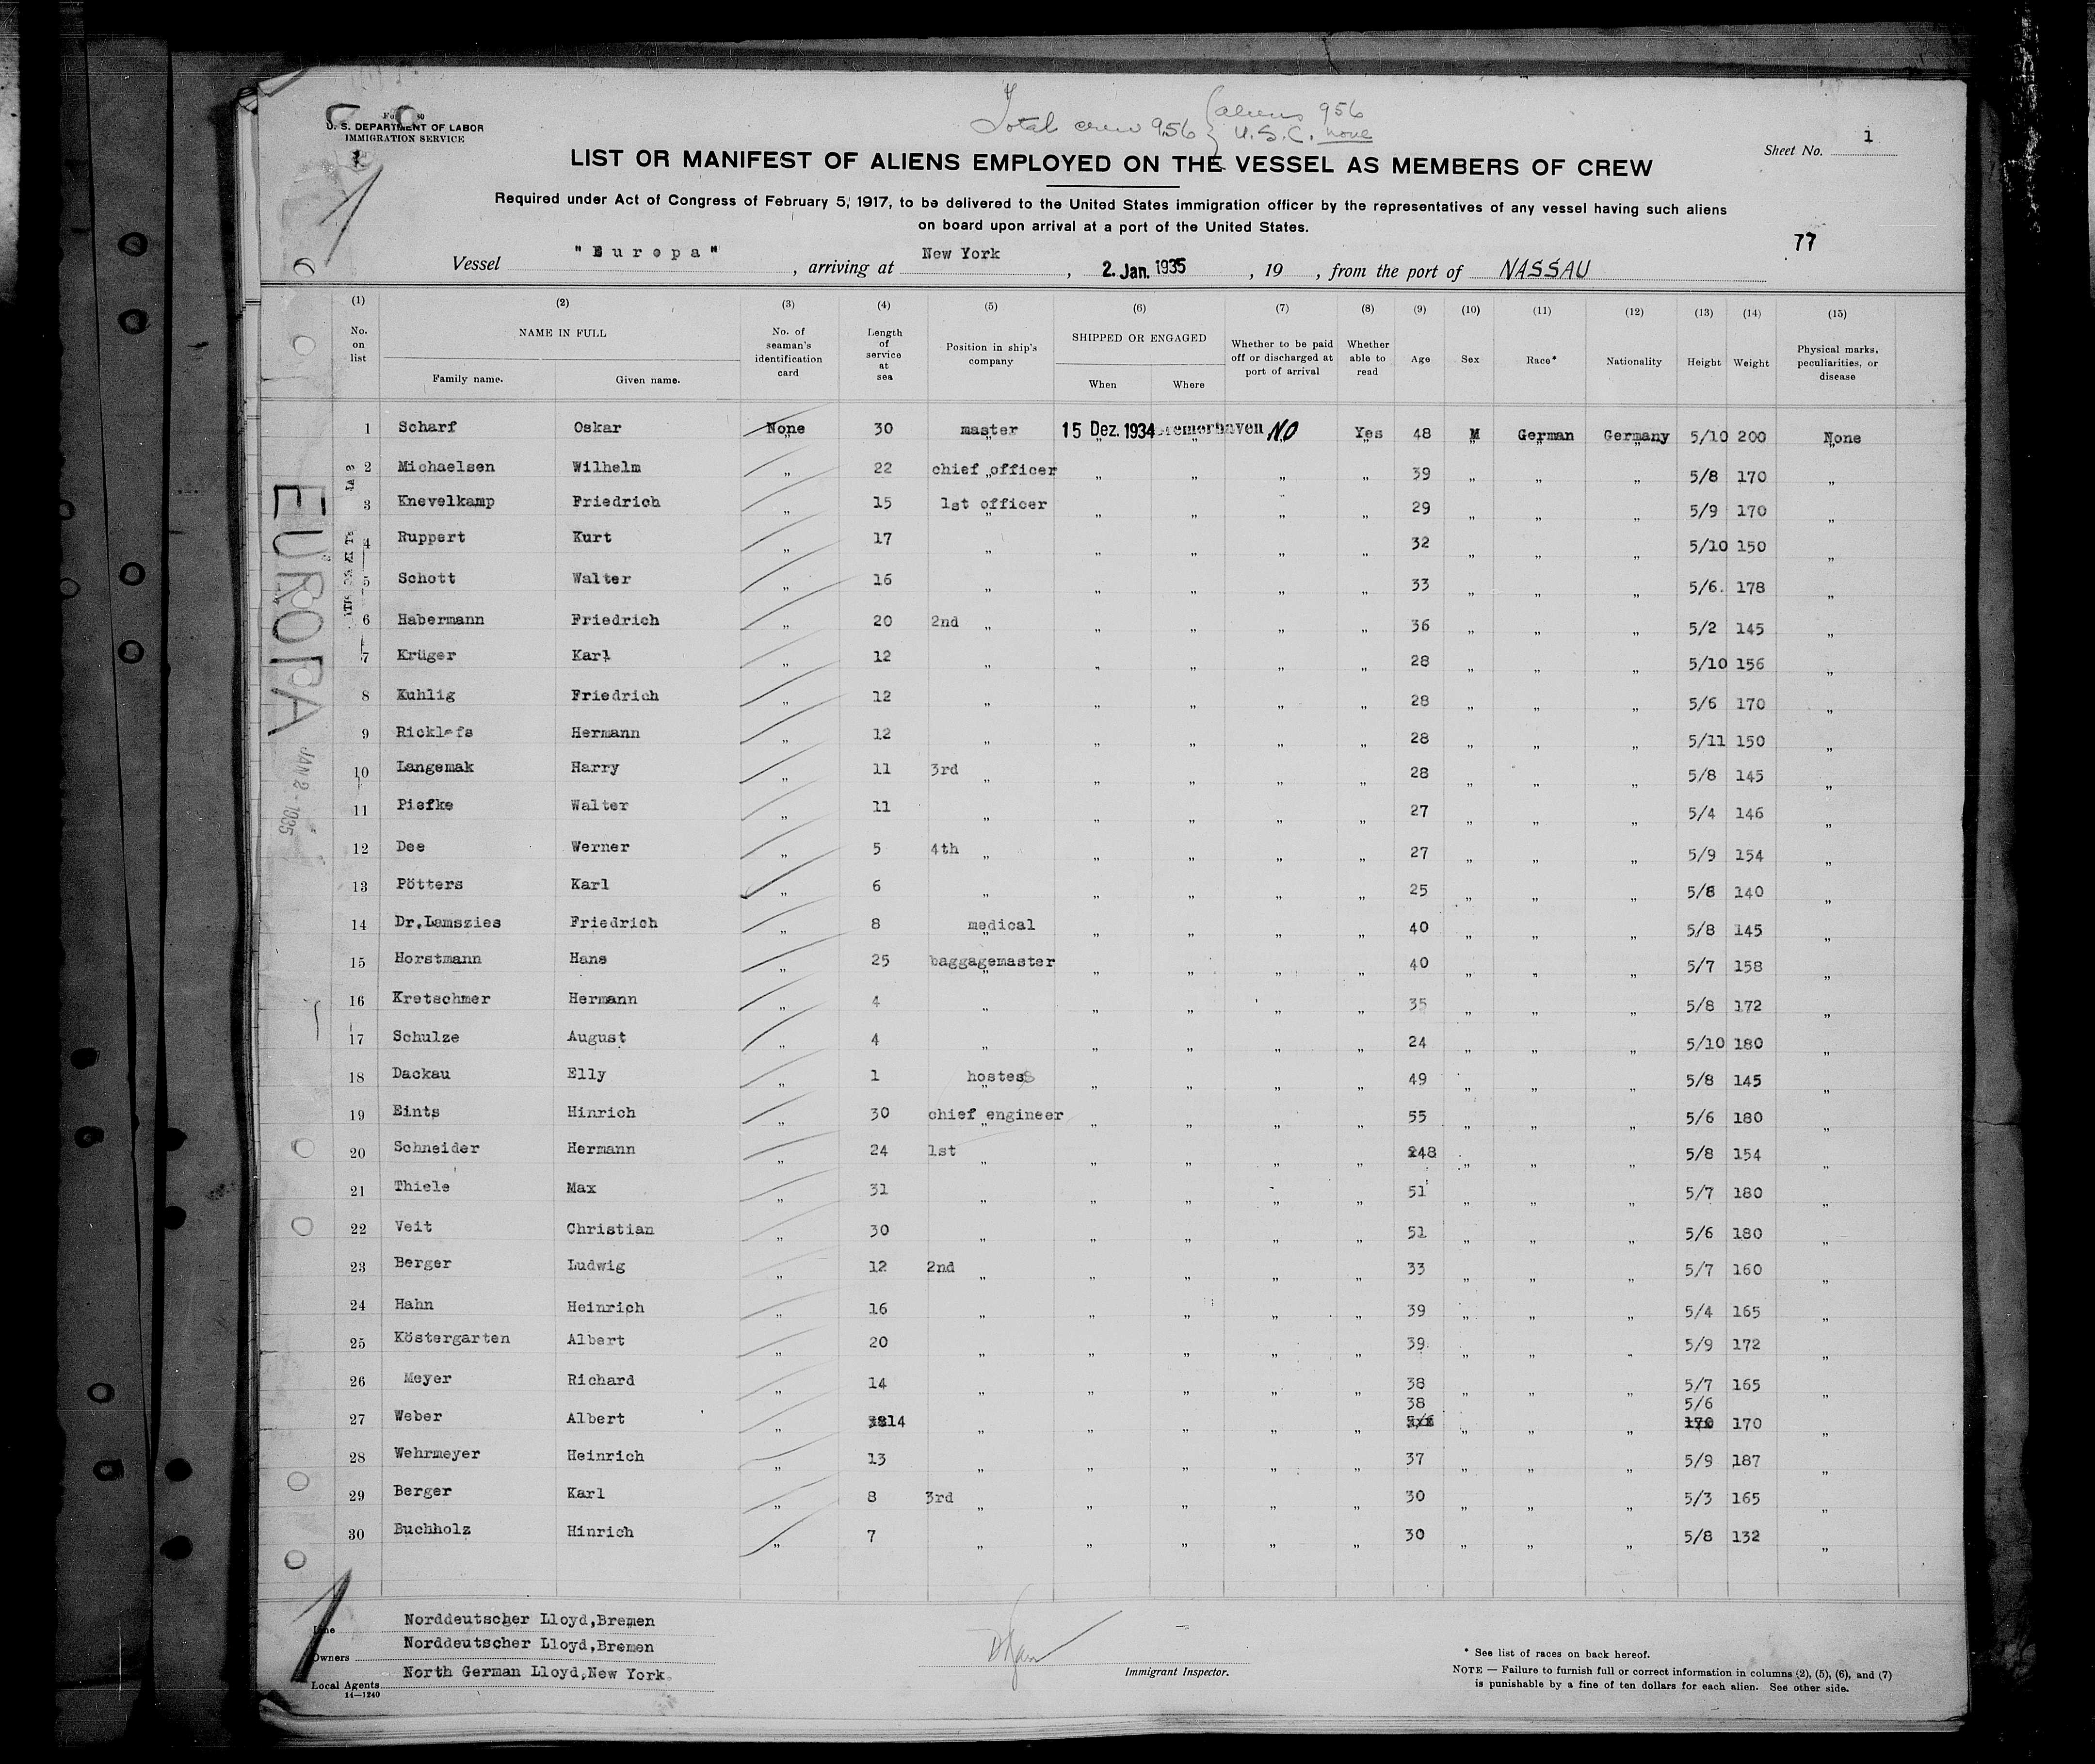 Total crew 956 { aliens 956
U.S.C. none
U. S. DEPARTMENT OF LABOR
IMMIGRATION SERVICE
Sheet No. 1
LIST OR MANIFEST OF ALIENS EMPLOYED ON THE VESSEL AS MEMBERS OF CREW
Required under Act of Congress of February 5, 1917, to be delivered to the United States immigration officer by the representatives of any vessel having such aliens
on board upon arrival at a port of the United States.
77
Vessel "Europa", arriving at New York, 2. Jan. 1935, 19 , from the port of NASSAU
(1) (2) (3) (4) (5) (6) (7) (8) (9) (10) (11) (12) (13) (14) (15)
No. on list NAME IN FULL Family name. Given name. No. of seaman's identification card Length of service at sea Position in ship's company SHIPPED OR ENGAGED When Where Whether to be paid off or discharged at port of arrival Whether able to read Age Sex Race* Nationality Height Weight Physical marks, peculiarities, or disease
1 Scharf Oskar None 30 master 15 Dez. 1934 Bremerhaven NO Yes 48 M German Germany 5/10 200 None
2 Michaelsen Wilhelm " 22 chief officer " " " " 39 " " " 5/8 170 "
3 Knevelkamp Friedrich " 15 1st officer " " " " 29 " " " 5/9 170 "
4 Ruppert Kurt " 17 " " " " " 32 " " " 5/10 150 "
5 Schott Walter " 16 " " " " " 33 " " " 5/6. 178 "
6 Habermann Friedrich " 20 2nd " " " " " 36 " " " 5/2 145 "
7 Krüger Karl " 12 " " " " " 28 " " " 5/10 156 "
8 Kuhlig Friedrich " 12 " " " " " 28 " " " 5/6 170 "
9 Ricklefs Hermann " 12 " " " " " 28 " " " 5/11 150 "
10 Langemak Harry " 11 3rd " " " " " 28 " " " 5/8 145 "
11 Piefke Walter " 11 " " " " " 27 " " " 5/4 146 "
12 Dee Werner " 5 4th " " " " " 27 " " " 5/9 154 "
13 Pötters Karl " 6 " " " " " 25 " " " 5/8 140 "
14 Dr.Lamszies Friedrich " 8 medical " " " " 40 " " " 5/8 145 "
15 Horstmann Hans " 25 baggagemaster " " " " 40 " " " 5/7 158 "
16 Kretschmer Hermann " 4 " " " " " 35 " " " 5/8 172 "
17 Schulze August " 4 " " " " " 24 " " " 5/10 180 "
18 Dackau Elly " 1 hostess " " " " 49 " " " 5/8 145 "
19 Eints Hinrich " 30 chief engineer " " " " 55 " " " 5/6 180 "
20 Schneider Hermann " 24 1st " " " " " 48 " " " 5/8 154 "
21 Thiele Max " 31 " " " " " 51 " " " 5/7 180 "
22 Veit Christian " 30 " " " " " 51 " " " 5/6 180 "
23 Berger Ludwig " 12 2nd " " " " " 33 " " " 5/7 160 "
24 Hahn Heinrich " 16 " " " " " 39 " " " 5/4 165 "
25 Köstergarten Albert " 20 " " " " " 39 " " " 5/9 172 "
26 Meyer Richard " 14 " " " " " 38 " " " 5/7 165 "
27 Weber Albert " 14 " " " " " 38 " " " 5/6 170 "
28 Wehrmeyer Heinrich " 13 " " " " " 37 " " " 5/9 187 "
29 Berger Karl " 8 3rd " " " " " 30 " " " 5/3 165 "
30 Buchholz Hinrich " 7 " " " " " 30 " " " 5/8 132 "
EUROPA
JAN 2 - 1935
Line Norddeutscher Lloyd,Bremen
Owners Norddeutscher Lloyd,Bremen
Local Agents North German Lloyd,New York.
14—1240
Immigrant Inspector.
* See list of races on back hereof.
NOTE — Failure to furnish full or correct information in columns (2), (5), (6), and (7)
is punishable by a fine of ten dollars for each alien. See other side.